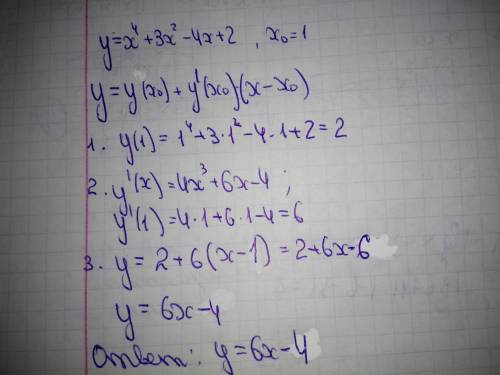 y=x⁴+3x²-4x+2 , x₀=1
y=y(x₀)+y'(x₀)(x-x₀)
1. y(1)=1⁴+3·1²-4·1+2=2
2. y'(x)=4x³+6x-4 ;
y'(1)=4·1+6·1-4=6
3. y=2+6(x-1)=2+6x-6
y=6x-4
Ответ: y=6x-4